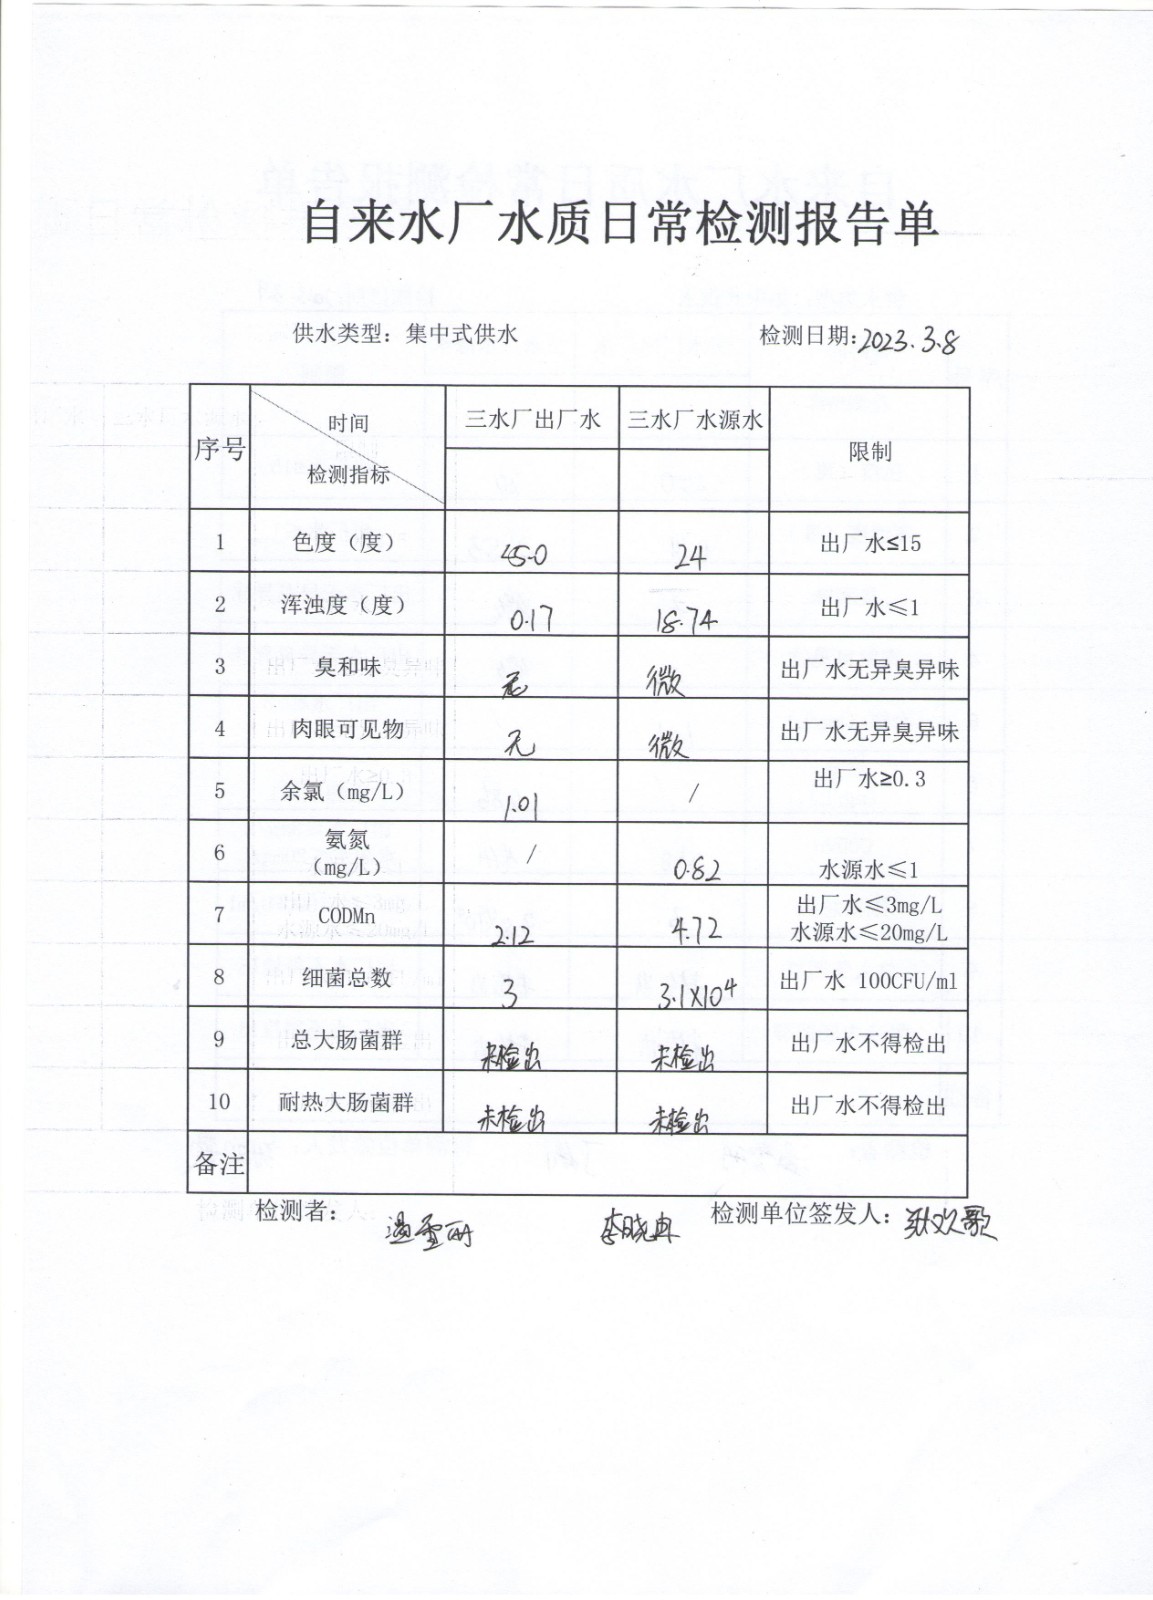 自来水厂水质日常检测报告单
供水类型：集中式供水 检测日期：2023.3.8
序号 时间 检测指标 三水厂出厂水 三水厂水源水 限制
1 色度（度） 24 出厂水≤15
2 浑浊度（度） 0.17 18.74 出厂水≤1
3 臭和味 无 微 出厂水无异臭异味
4 肉眼可见物 无 微 出厂水无异臭异味
5 余氯（mg/L） 1.01 / 出厂水≥0.3
6 氨氮（mg/L） / 0.82 水源水≤1
7 CODMn 2.12 4.72 出厂水≤3mg/L 水源水≤20mg/L
8 细菌总数 3 3.1×10⁴ 出厂水 100CFU/ml
9 总大肠菌群 未检出 未检出 出厂水不得检出
10 耐热大肠菌群 未检出 未检出 出厂水不得检出
备注
检测者： 检测单位签发人：